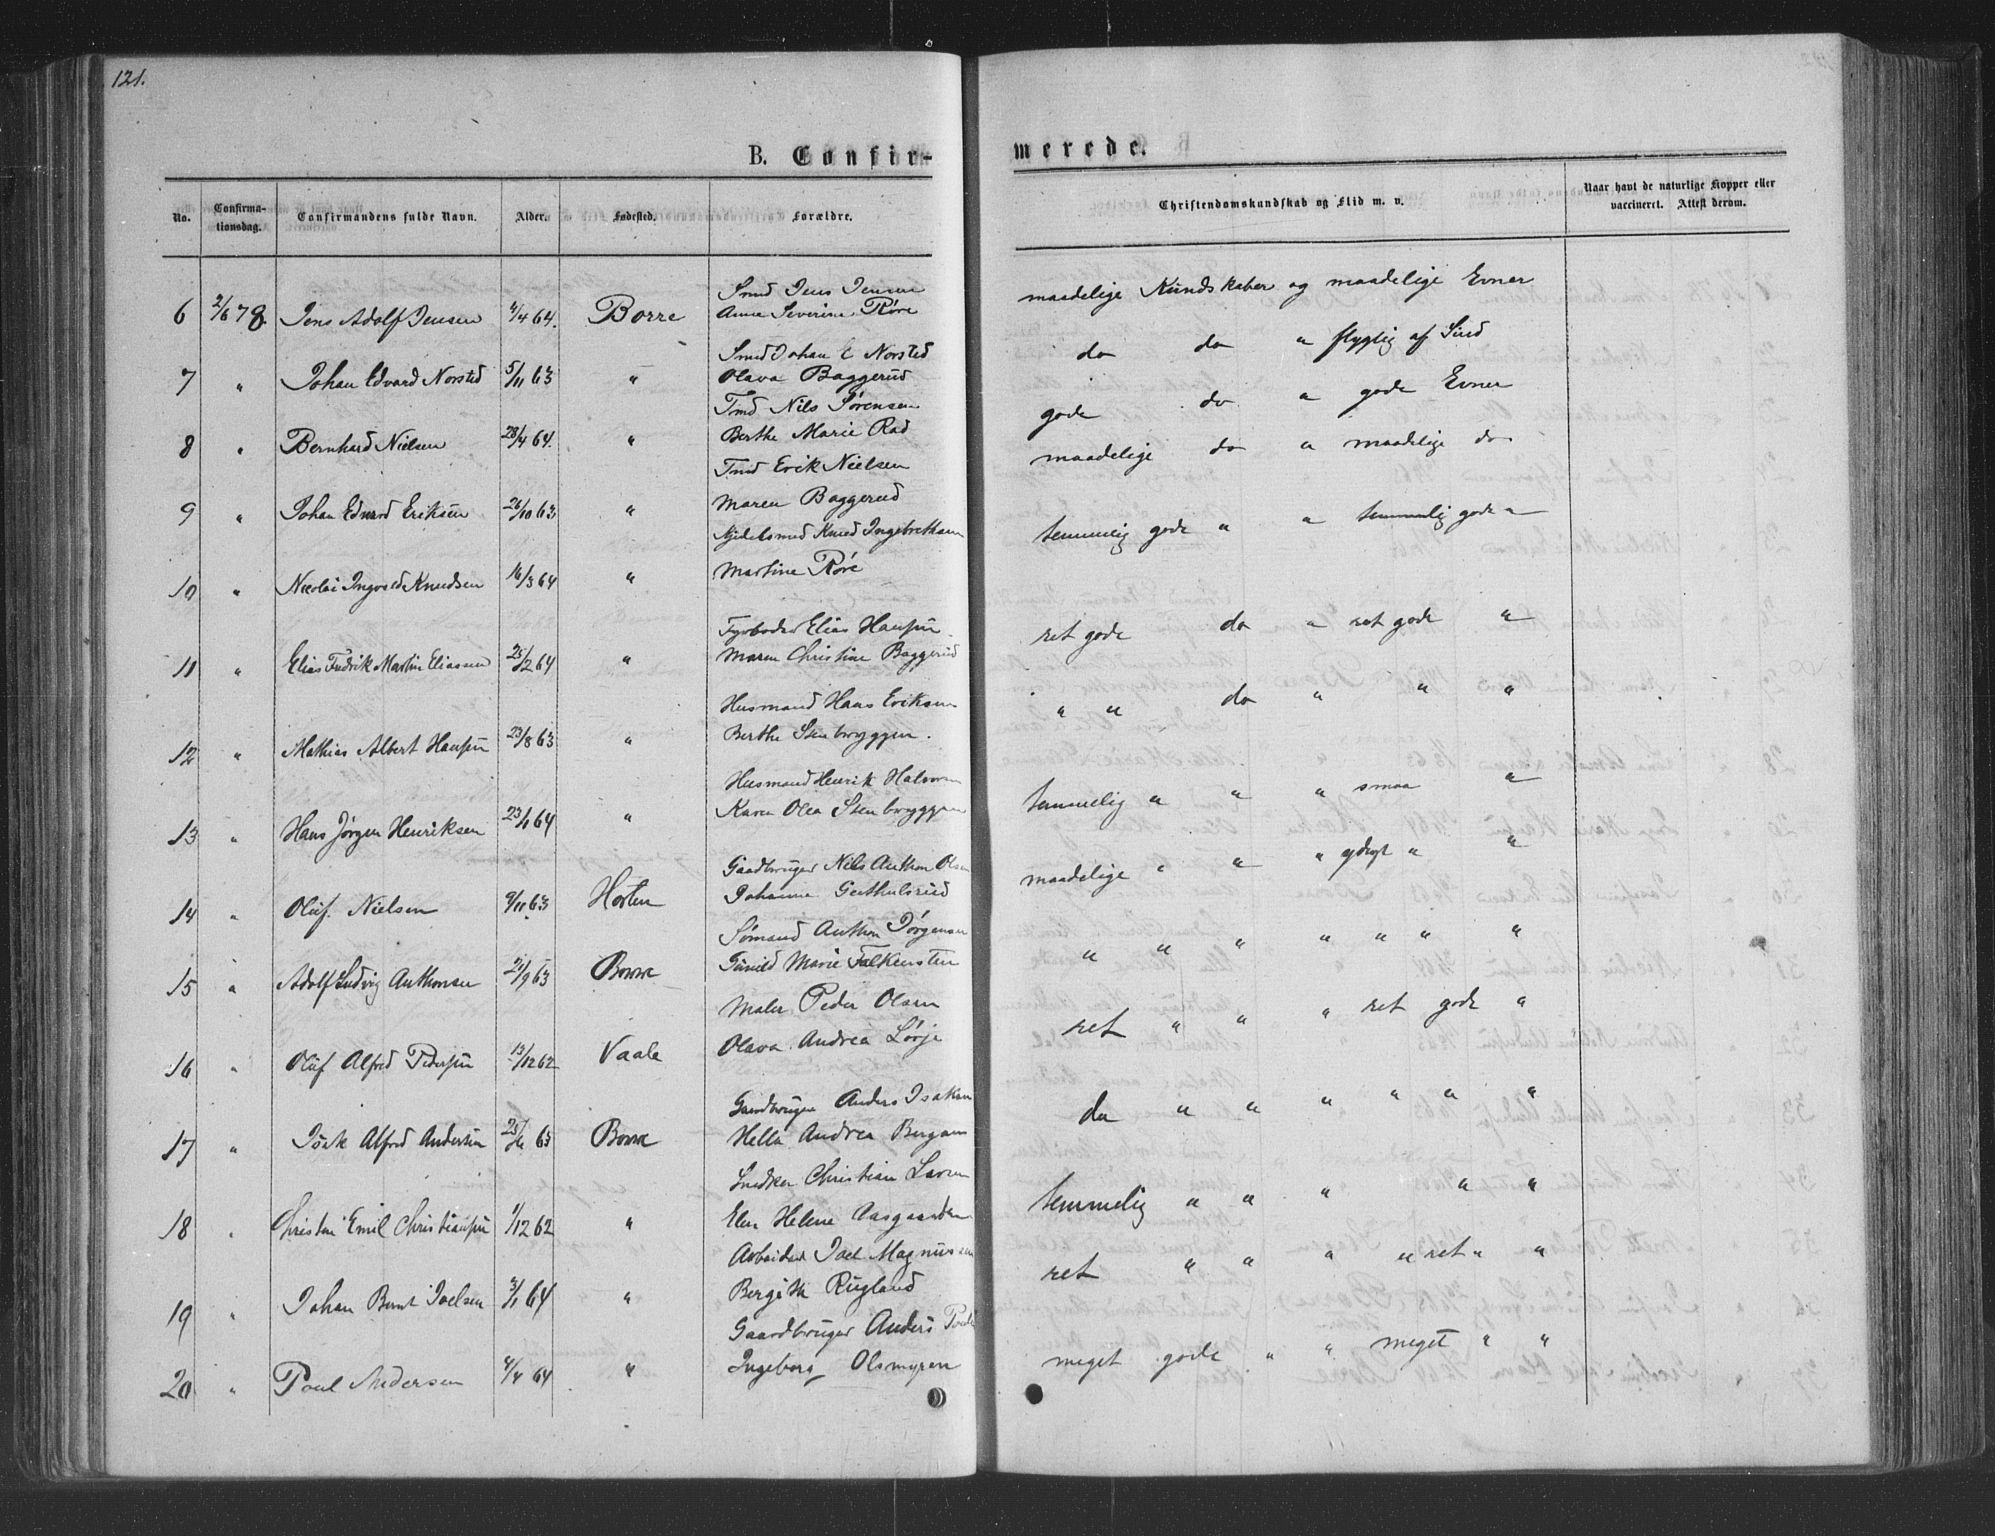 121.
B. Confir-
merede.
No.
Confirma-
tionsdag.
Confirmandens fulde Navn.
Alder.
Fødested.
Forældre.
Christendomskundskab og Flid m. v.
Naar havt de naturlige Kopper eller
vaccineret. Attest derom.
Smd Jens Jensen
6 2/6 78. Jens Adolf Jensen 4/4 64. Borre Anne Severine Røre maadelige Kundskaber og maadelige Evner
Smd Johan E Norsted
7 " Johan Edvard Norsted 5/11 63 " Olava Baggerud do do " flygtig af Sind
Tmd Nils Sørensen
8 " Bernhard Nielsen 28/4 64. " Berthe Marie Rad gode do " gode Evner
Tmd Erik Nielsen
9 " Johan Edvard Eriksen 26/10 63 " Maren Baggerud maadelige do " maadelige do
Knud Ingebrethsen
10 " Nicolai Knudsen 16/3 64 " Martine Røre temmelig gode " " temmelig gode "
Fyrbøder Elias Hansen
11 " Elias Fredrik Martin Eliassen 25/2 64 " Maren Christine Baggerud ret gode do " ret gode "
Husmand Hans Eriksen
12 " Mathias Albert Hansen 23/8 63 " Berthe Stenbryggen. " " do " " "
Husmand Henrik Halvorsen
13 " Hans Jørgen Henriksen 23/1 64 " Karen Olea Stenbryggen temmelig " " " smaa "
Gaardbruger Nils Anthon Olsen
14 " Oluf Nielsen 9/11 63 Horten Johanne maadelige " " " "
Sømand Anthon Jørgensen
15 " Adolf Ludvig Anthonsen 21/9 63 Borre Gunild Marie Falkensten " " " " " " "
Maler Peder Olsen
16 " Oluf Alfred Pedersen 13/12 62 Vaale Olava Andrea Lørje ret " " " ret gode "
Gaardbruger Anders Isaksen
17 " Isak Alfred Andersen 25/ 63 Borre Andrea Bergan do " " " " " "
Snedker Christian Larsen
18 " Emil Christiansen 1/12 62 " Elen Helene Aasgaarden temmelig " " " " "
Arbeider Joel Magnussen
19 " Johan Bernt Joelsen 3/1 64 " Bergith Rugland ret " " " " ret " "
Gaardbruger Anders
20 " Poul Andersen 4/4 64 " Ingeborg Olsmyren meget gode " " meget " "